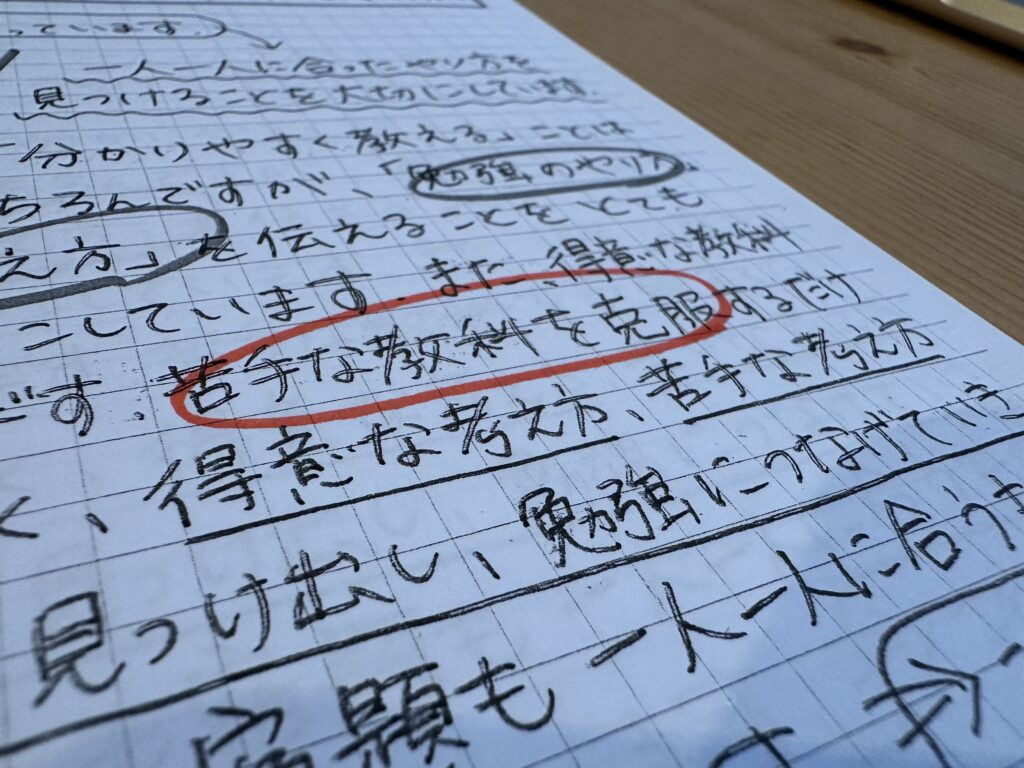 っています.
一人一人に合ったやり方を
見つけることを大切にしています.
「分かりやすく教える」ことは
ちろんですが、「勉強のやり方」
え方」を伝えることをとても
にしています.また、得意な教科
です.苦手な教科を克服するだけ
く、得意な考え方、苦手な考え方
見つけ出し、勉強につなげていき
宿題も一人一人に合うも